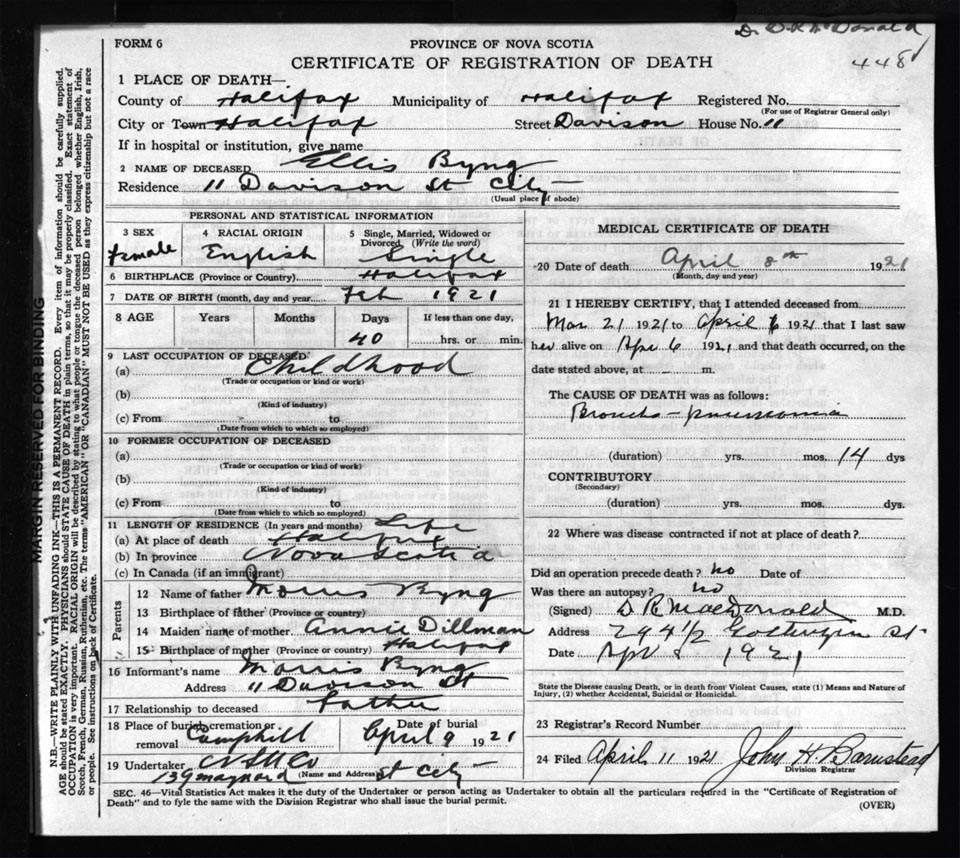 Dr D R McDonald
448
FORM 6
PROVINCE OF NOVA SCOTIA
CERTIFICATE OF REGISTRATION OF DEATH
1 PLACE OF DEATH—
County of Halifax Municipality of Halifax Registered No.
(For use of Registrar General only)
City or Town Halifax Street Davison House No. 11
If in hospital or institution, give name
2 NAME OF DECEASED Ellis Byng
Residence 11 Davison St City
(Usual place of abode)
PERSONAL AND STATISTICAL INFORMATION
3 SEX female
4 RACIAL ORIGIN English
5 Single, Married, Widowed or Divorced (Write the word) Single
6 BIRTHPLACE (Province or Country) Halifax
7 DATE OF BIRTH (month, day and year) Feb 1921
8 AGE Years Months Days If less than one day,
40 hrs. or min.
9 LAST OCCUPATION OF DECEASED
(a) Childhood
(Trade or occupation or kind or work)
(b)
(Kind of industry)
(c) From to
(Date from which to which so employed)
10 FORMER OCCUPATION OF DECEASED
(a)
(Trade or occupation or kind of work)
(b)
(Kind of industry)
(c) From to
(Date from which to which so employed)
11 LENGTH OF RESIDENCE (In years and months) Life
(a) At place of death Halifax
(b) In province Nova Scotia
(c) In Canada (if an immigrant)
Parents
12 Name of father Morris Byng
13 Birthplace of father (Province or country)
14 Maiden name of mother Annie Dillman
15 Birthplace of mother (Province or country) Halifax
16 Informant's name Morris Byng
Address 11 Davison St
17 Relationship to deceased Father
18 Place of burial, cremation or removal Camphill
Date of burial April 9 1921
19 Undertaker N S U Co
139 Maynard (Name and Address) St City
MEDICAL CERTIFICATE OF DEATH
20 Date of death April 8th 1921
(Month, day and year)
21 I HEREBY CERTIFY, that I attended deceased from
Mar 21 1921 to April 6 1921 that I last saw
her alive on Apr 6 1921 and that death occurred, on the
date stated above, at - m.
The CAUSE OF DEATH was as follows:
Broncho-pneumonia
(duration) yrs. mos. 14 dys
CONTRIBUTORY
(Secondary)
(duration) yrs. mos. dys.
22 Where was disease contracted if not at place of death?
Did an operation precede death? no Date of
Was there an autopsy? no
(Signed) D. R. MacDonald M.D.
Address 294 1/2 Gottingen St
Date Apr 8 1921
State the Disease causing Death, or in death from Violent Causes, state (1) Means and Nature of
Injury, (2) whether Accidental, Suicidal or Homicidal.
23 Registrar's Record Number
24 Filed April 11 1921 John H Barnstead
Division Registrar
SEC. 46—Vital Statistics Act makes it the duty of the Undertaker or person acting as Undertaker to obtain all the particulars required in the "Certificate of Registration of
Death" and to fyle the same with the Division Registrar who shall issue the burial permit.
(OVER)
MARGIN RESERVED FOR BINDING
N.B.—WRITE PLAINLY WITH UNFADING INK—THIS IS A PERMANENT RECORD. Every item of information should be carefully supplied.
AGE should be stated EXACTLY. PHYSICIANS should STATE CAUSE OF DEATH in plain terms, so that it may be properly classified. Exact statement of
OCCUPATION is very important. RACIAL ORIGIN will be described by stating to what people or tongue the deceased person belonged whether English, Irish,
Scotch, French, German, Russian, Ruthenian, etc. The terms "AMERICAN" OR "CANADIAN" MUST NOT BE USED as they express citizenship but not a race
or people. See instructions on back of Certificate.